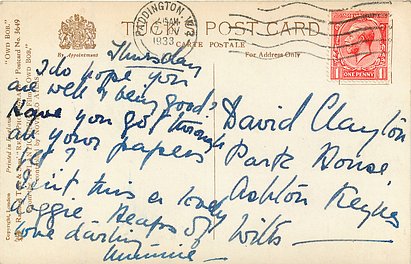 PADDINGTON. W.2
1933
THE POST CARD
CARTE POSTALE
For Address Only
ONE PENNY
"OWN BOB."
Postcard No. 3649.
Copyright, London
Printed in
Thursday
I do hope you
are well & being good?
Have you got through
all your papers
yet?
Isn't this a lovely
doggie. Heaps of
love darling
Mummie
David Clayton
Park House
Ashton Keynes
Wilts